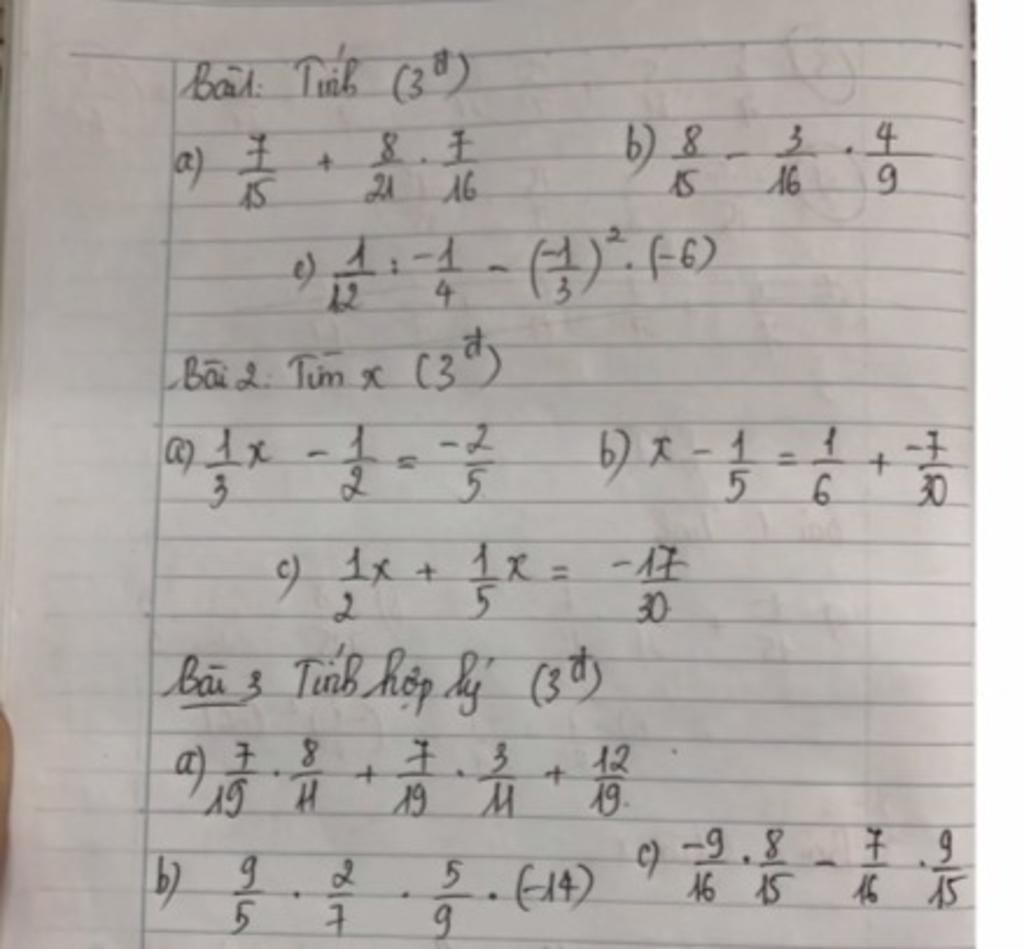 Bài 1: Tính (3đ)
a) 7/15 + 8/21 . 7/16 b) 8/15 - 3/16 . 4/9
c) 1/12 : -1/4 - (-1/3)² . (-6)
Bài 2: Tìm x (3đ)
a) 1/3 x - 1/2 = -2/5 b) x - 1/5 = 1/6 + -7/30
c) 1/2 x + 1/5 x = -17/30
Bài 3 Tính hợp lý (3đ)
a) 7/19 . 8/11 + 7/19 . 3/11 + 12/19
b) 9/5 . 2/7 . 5/9 . (-14) c) -9/16 . 8/15 - 7/16 . 9/15